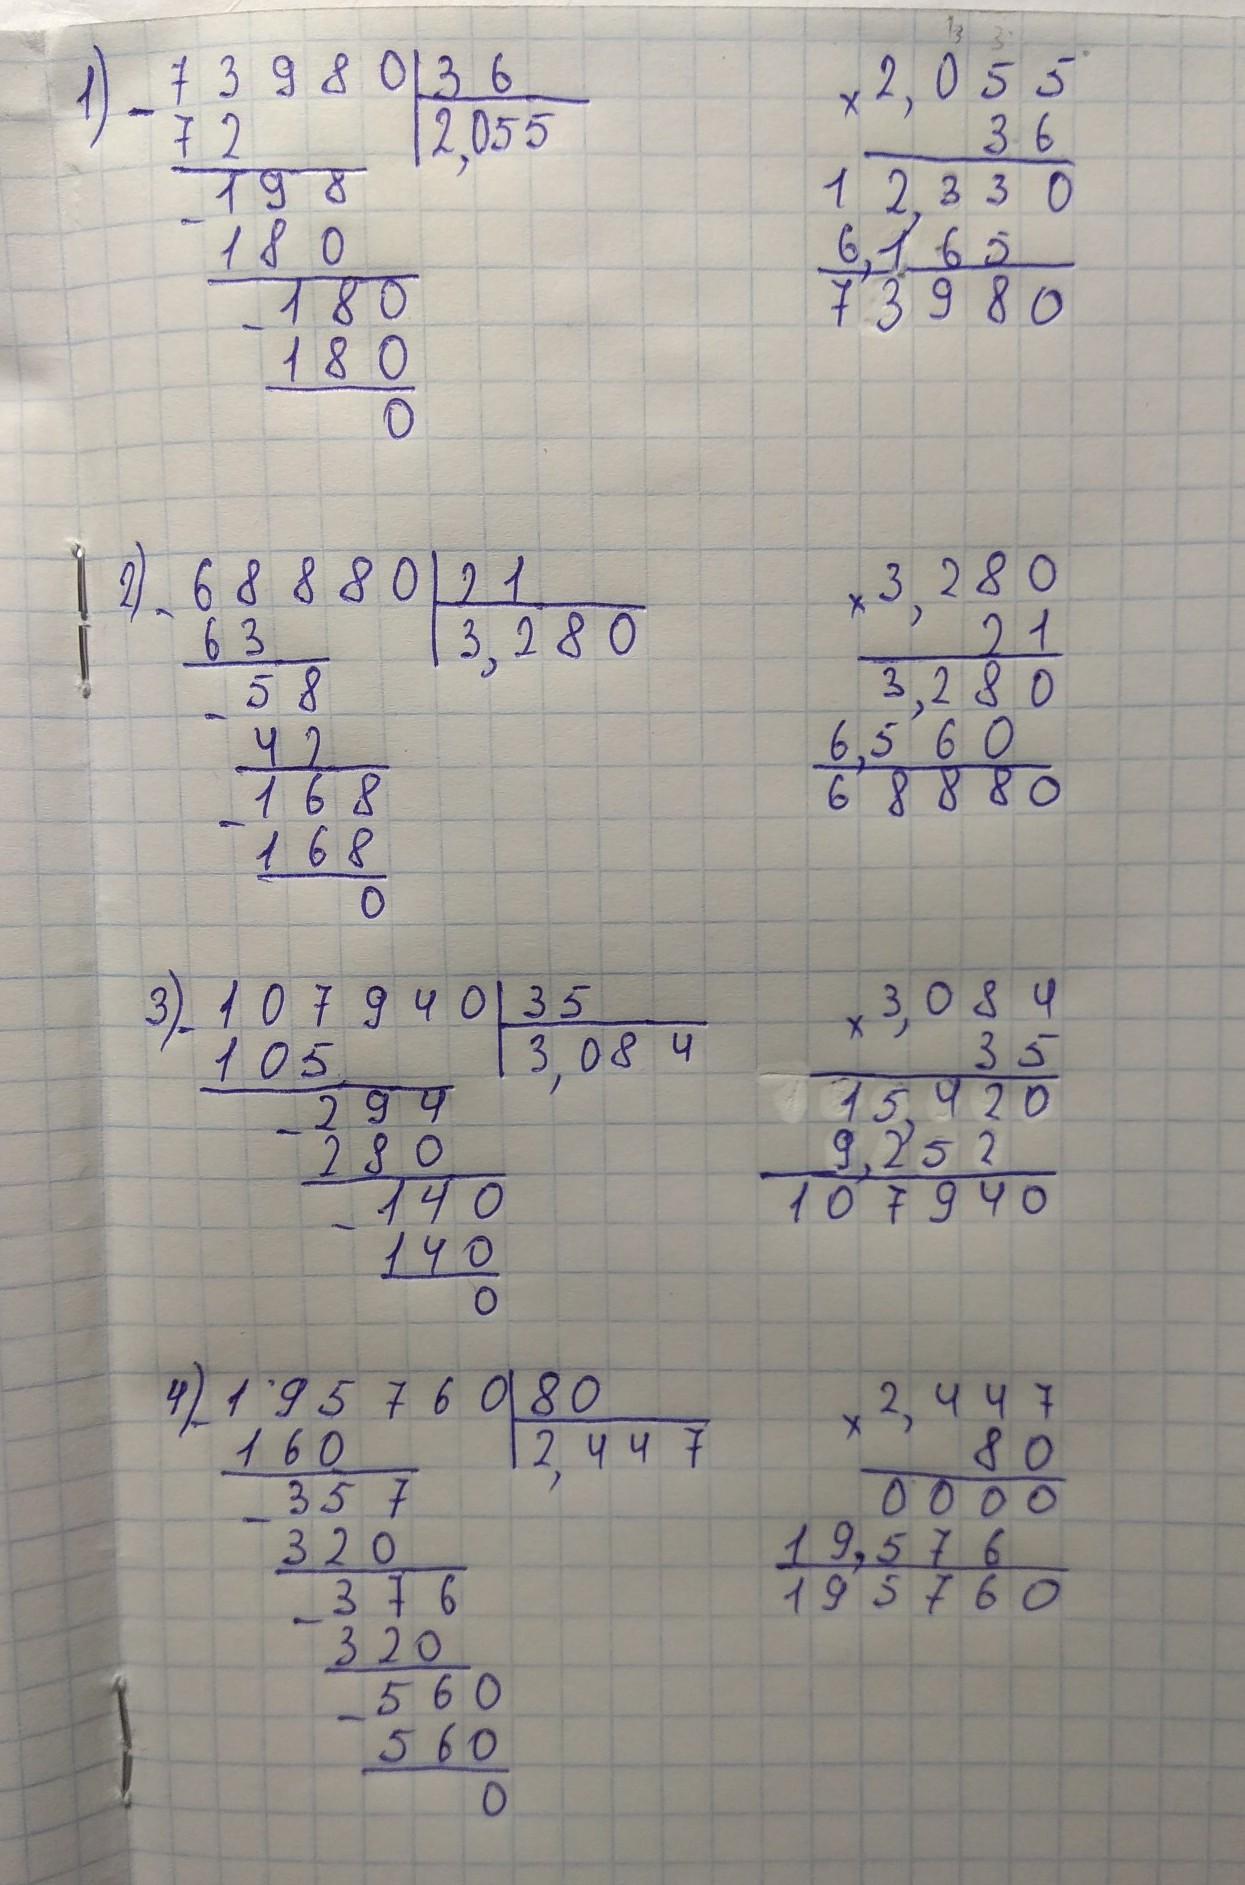 1) - 73980 | 36
72 | 2,055
- 198
180
- 180
180
0
× 2,055
36
12,330
6,165
73980
2) - 68880 | 21
63 | 3,280
- 58
42
- 168
168
0
× 3,280
21
3,280
6,560
68880
3) - 107940 | 35
105 | 3,084
- 294
280
- 140
140
0
× 3,084
35
15,420
9,252
107940
4) - 195760 | 80
160 | 2,447
- 357
320
- 376
320
- 560
560
0
× 2,447
80
0000
19,576
195760